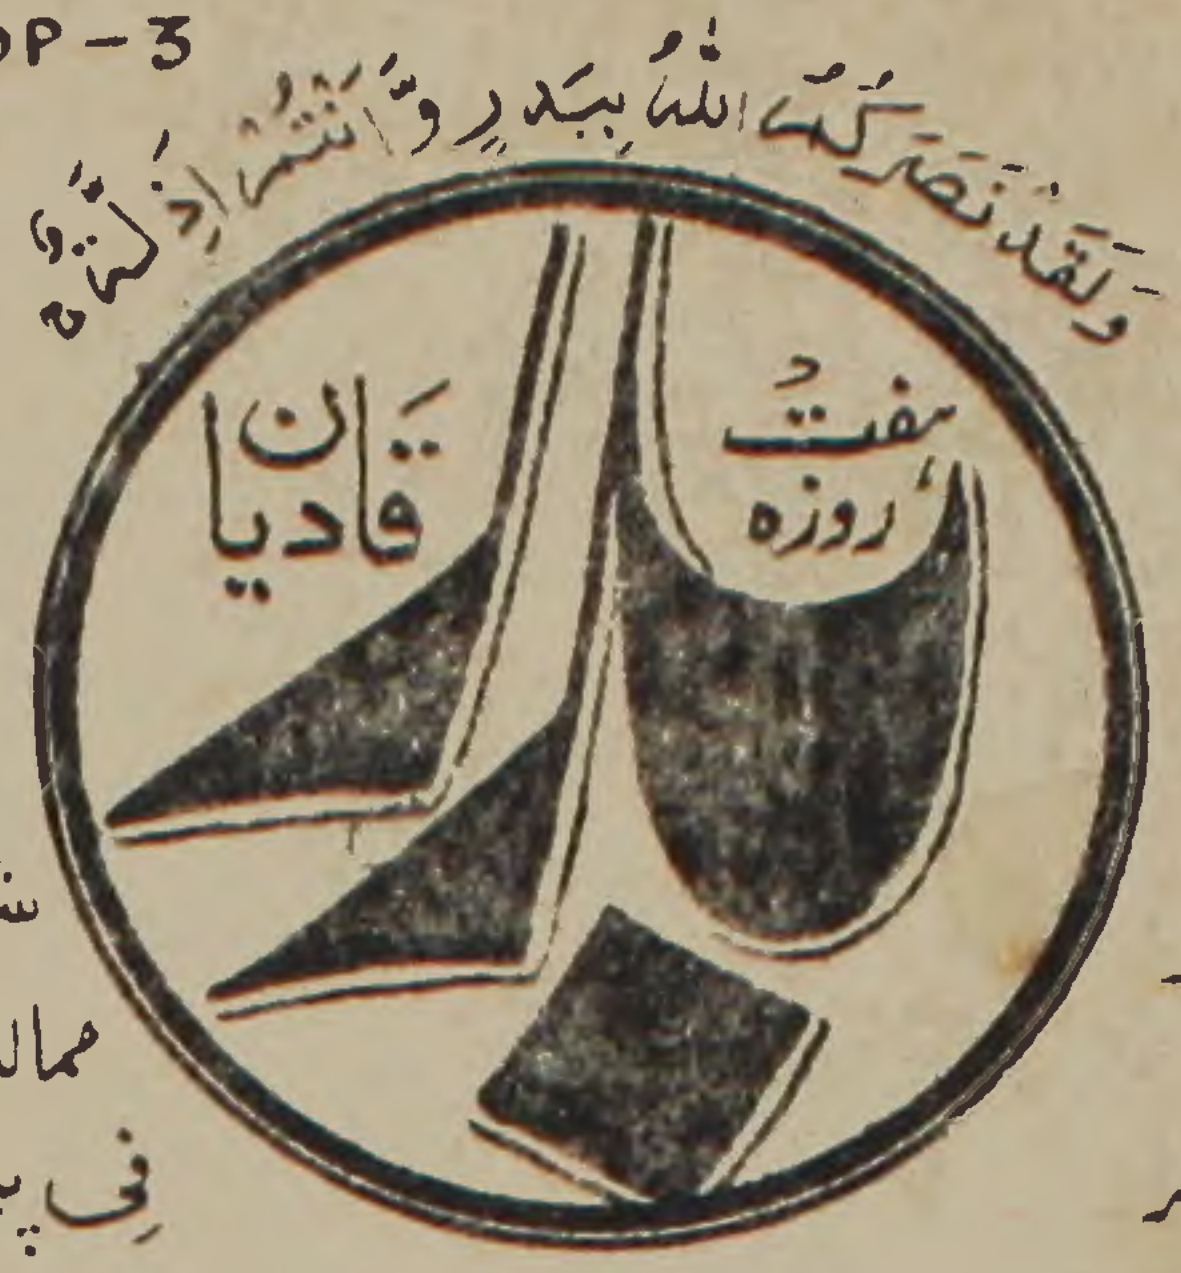 DP-3
وَلَقَدْ نَصَرَكُمُ اللّٰهُ بِبَدْرٍ وَّاَنْتُمْ اَذِلَّةٌ
ہفت
روزہ
بدر
قادیان
فِی